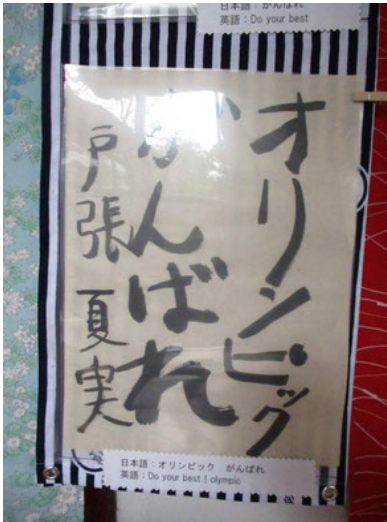 日本語：がんばれ
英語：Do your best
オリンピック
がんばれ
戸張 夏実
日本語：オリンピック　がんばれ
英語：Do your best！olympic